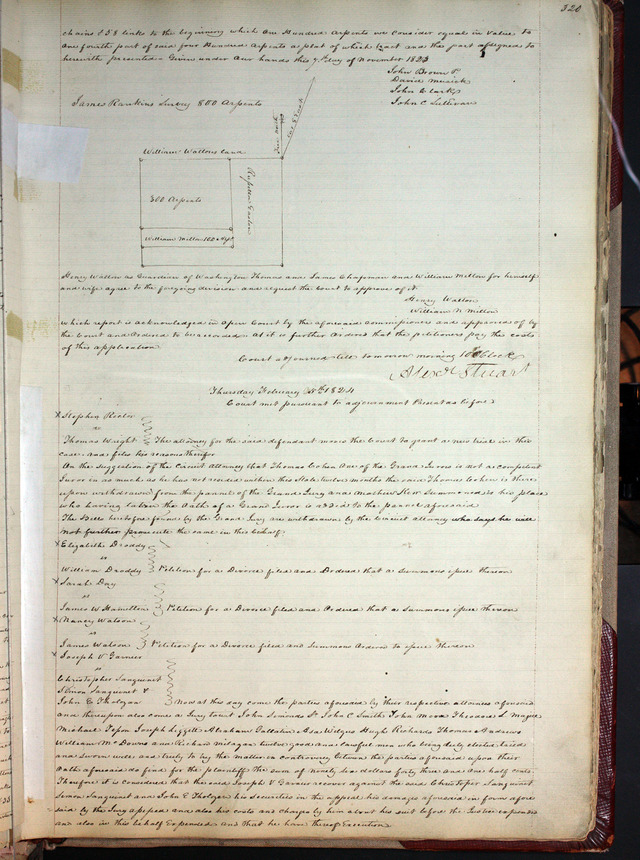 320
chains & 58 links to the beginning which One Hundred Arpents we consider equal in Value to
One fourth part of said four Hundred Arpents a plat of which tract and the part assigned to
herewith presented Given under Our hands this 7th day of November 1823
John Brown
David Musick
John Clark
John C Sullivan
James Rankins Survey 800 Arpents
William Waltons land
Rufus Easton
300 Arpents
William Millon 100 Apts
Henry Walton as Guardian of Washington Thomas and James Chapman and William Millon for himself
and wife agree to the foregoing division and request the Court to approve of it
Henry Walton
William N Millon
which report is acknowledged in Open Court by the aforesaid Commissioners and approved of by
the Court and Ordered to be recorded And it is further Ordered that the petitioners pay the costs
of this application
Court adjourned till tomorrow morning 10 Oclock
Alex Stuart
Thursday February 1824
Court met pursuant to adjournment Present as before
Stephen
vs
Thomas Wright The attorney for the said defendant moves the Court to grant a new trial in this
case and files his reasons therefor
On the Suggestion of the Circuit Attorney that Thomas Cohen One of the Grand Jurors is not a competent
Juror in as much as he has not resided within this State twelve months the said Thomas Cohen is there
upon withdrawn from the pannel of the Grand Jury and Matthew Kerr Summoned in his place
who having taken the Oath of a Grand Juror is added to the pannel aforesaid
The Bills heretofore found by the Grand Jury are withdrawn by the Circuit attorney who says he will
not further prosecute the same in this behalf
Elizabeth Droddy
vs
William Droddy Petition for a Divorce filed and Ordered that a summons issue thereon
Sarah Day
vs
James W Hamilton Petition for a Divorce filed and Ordered that a Summons issue thereon
Nancy Watson
vs
James Watson Petition for a Divorce filed and Summons Ordered to issue thereon
Joseph V Garnier
vs
Christopher Sanguinet
Simon Sanguinet &
John E Tholozan Now at this day come the parties aforesaid by their respective attornies aforesaid
and thereupon also come a Jury towit John Simonds Jr John C Smith John Mora Theodore L Maguire
Michael Tesson Joseph Liggett Abraham Gallatin Asa Wilgus Hugh Richards Thomas Andrews
William Mc Downs and Richard Milagan twelve good and careful men who being duly elected tried
and sworn well and truly to try the matter in controversy between the parties aforesaid upon their
Oath aforesaid do find for the plaintiff the sum of ninety six dollars forty three and One half cents
Therefore it is considered that the said Joseph V Garnier recover against the said Christopher Sanguinet
Simon Sanguinet and John E Tholozan his securities in the appeal his damages aforesaid in form afore
said by the Jury assessed and also his costs and charges by him about his suit before the Justice expended
and also in this behalf Expended and that he have thereof Execution